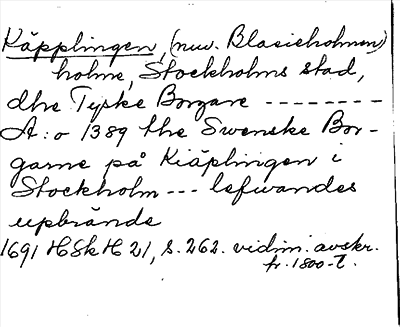 Käpplingen, (nuv. Blasieholmen)
holme, Stockholms stad,
dhe Tyske Borgare --------
A:o 1389 the Swenske Bor-
garne på Kiäplingen i
Stockholm --- lefwandes
upbrände
1691 HSkH 21, s. 262. vidim. avskr.
fr. 1800-t.